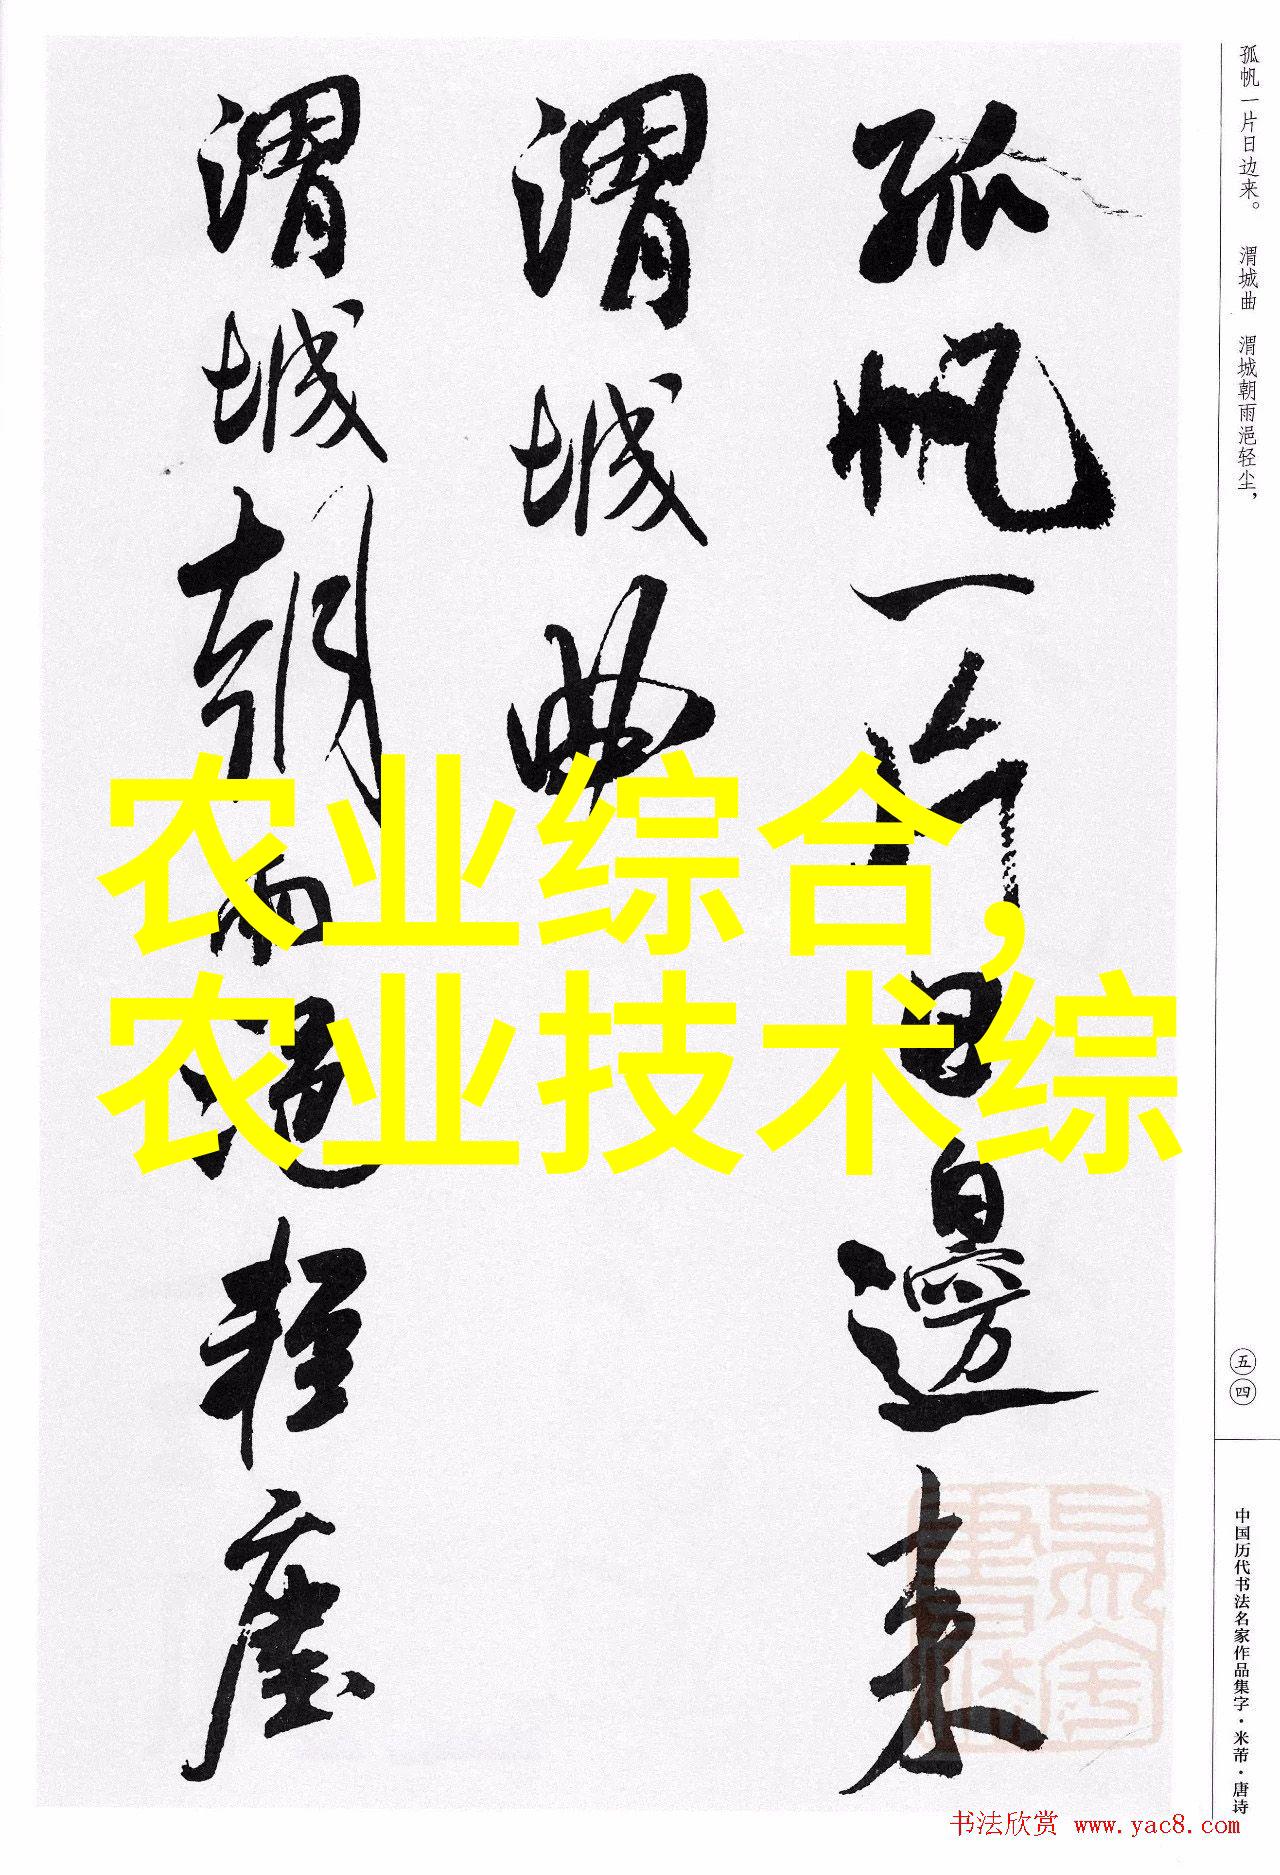 孤帆一片日边来。 渭城曲 渭城朝雨浥轻尘，
孤帆一片日邊来
渭城曲
渭城朝雨浥轻塵
农业综合，
农业技术综
五四
中国历代书法名家作品集字·米芾·唐诗
书法欣赏 www.yac8.com